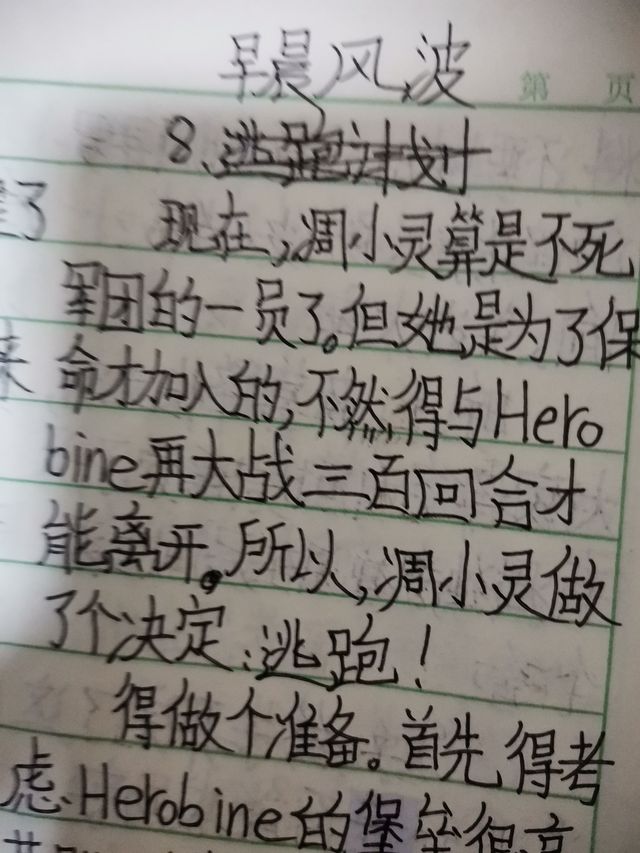 早晨风波
第 页
8、逃跑计划
了 现在,凋小灵算是不死
军团的一员了。但她是为了保
来 命才加入的,不然,得与Hero
bine再大战三百回合才
能离开。所以,凋小灵做
了个决定:逃跑!
得做个准备。首先,得考
虑Herobine的堡垒很高